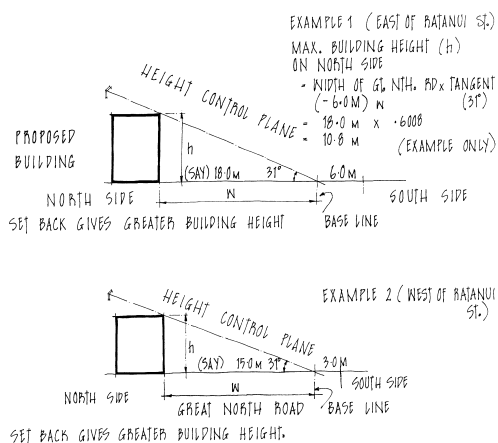 EXAMPLE 1 (EAST OF RATANUI ST.)
MAX. BUILDING HEIGHT (h)
ON NORTH SIDE
= WIDTH OF GT. NTH. RD x TANGENT
(-6.0 M) W (31°)
= 18.0 M x .6008
= 10.8 M
(EXAMPLE ONLY)
HEIGHT CONTROL PLANE
PROPOSED
BUILDING
h
(SAY) 18.0 M 31° 6.0 M
NORTH SIDE
W
SOUTH SIDE
BASE LINE
SET BACK GIVES GREATER BUILDING HEIGHT
EXAMPLE 2 (WEST OF RATANUI
ST.)
HEIGHT CONTROL PLANE
h
(SAY) 15.0 M 31° 3.0 M
SOUTH SIDE
W
NORTH SIDE
GREAT NORTH ROAD
BASE LINE
SET BACK GIVES GREATER BUILDING HEIGHT.